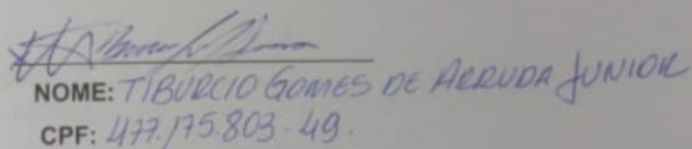 NOME: TIBURCIO GOMES DE ARRUDA JUNIOR
CPF: 477.175.803.49.